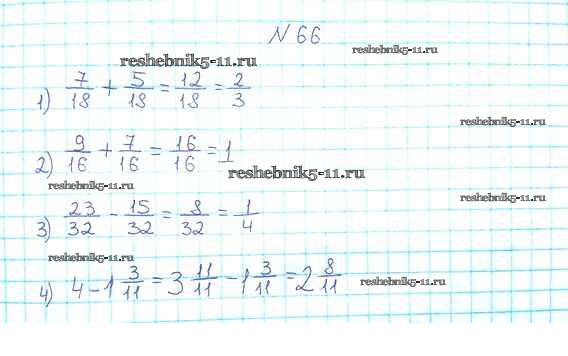 N 66
reshebnik5-11.ru
reshebnik5-11.ru
1) 7/18 + 5/18 = 12/18 = 2/3
reshebnik5-11.ru
2) 9/16 + 7/16 = 16/16 = 1
reshebnik5-11.ru
reshebnik5-11.ru
reshebnik5-11.ru
3) 23/32 - 15/32 = 8/32 = 1/4
reshebnik5-11.ru
4) 4 - 1 3/11 = 3 11/11 - 1 3/11 = 2 8/11
reshebnik5-11.ru